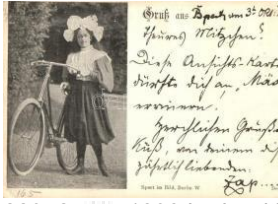 Gruß aus
Theures Mitzchen!
Diese Ansichts-Karte
dürfte dich an
erinnern.
Herzlichen Gruß
Kuß, von deinem dich
zärtlich liebenden
Sport im Bild, Berlin W.
165